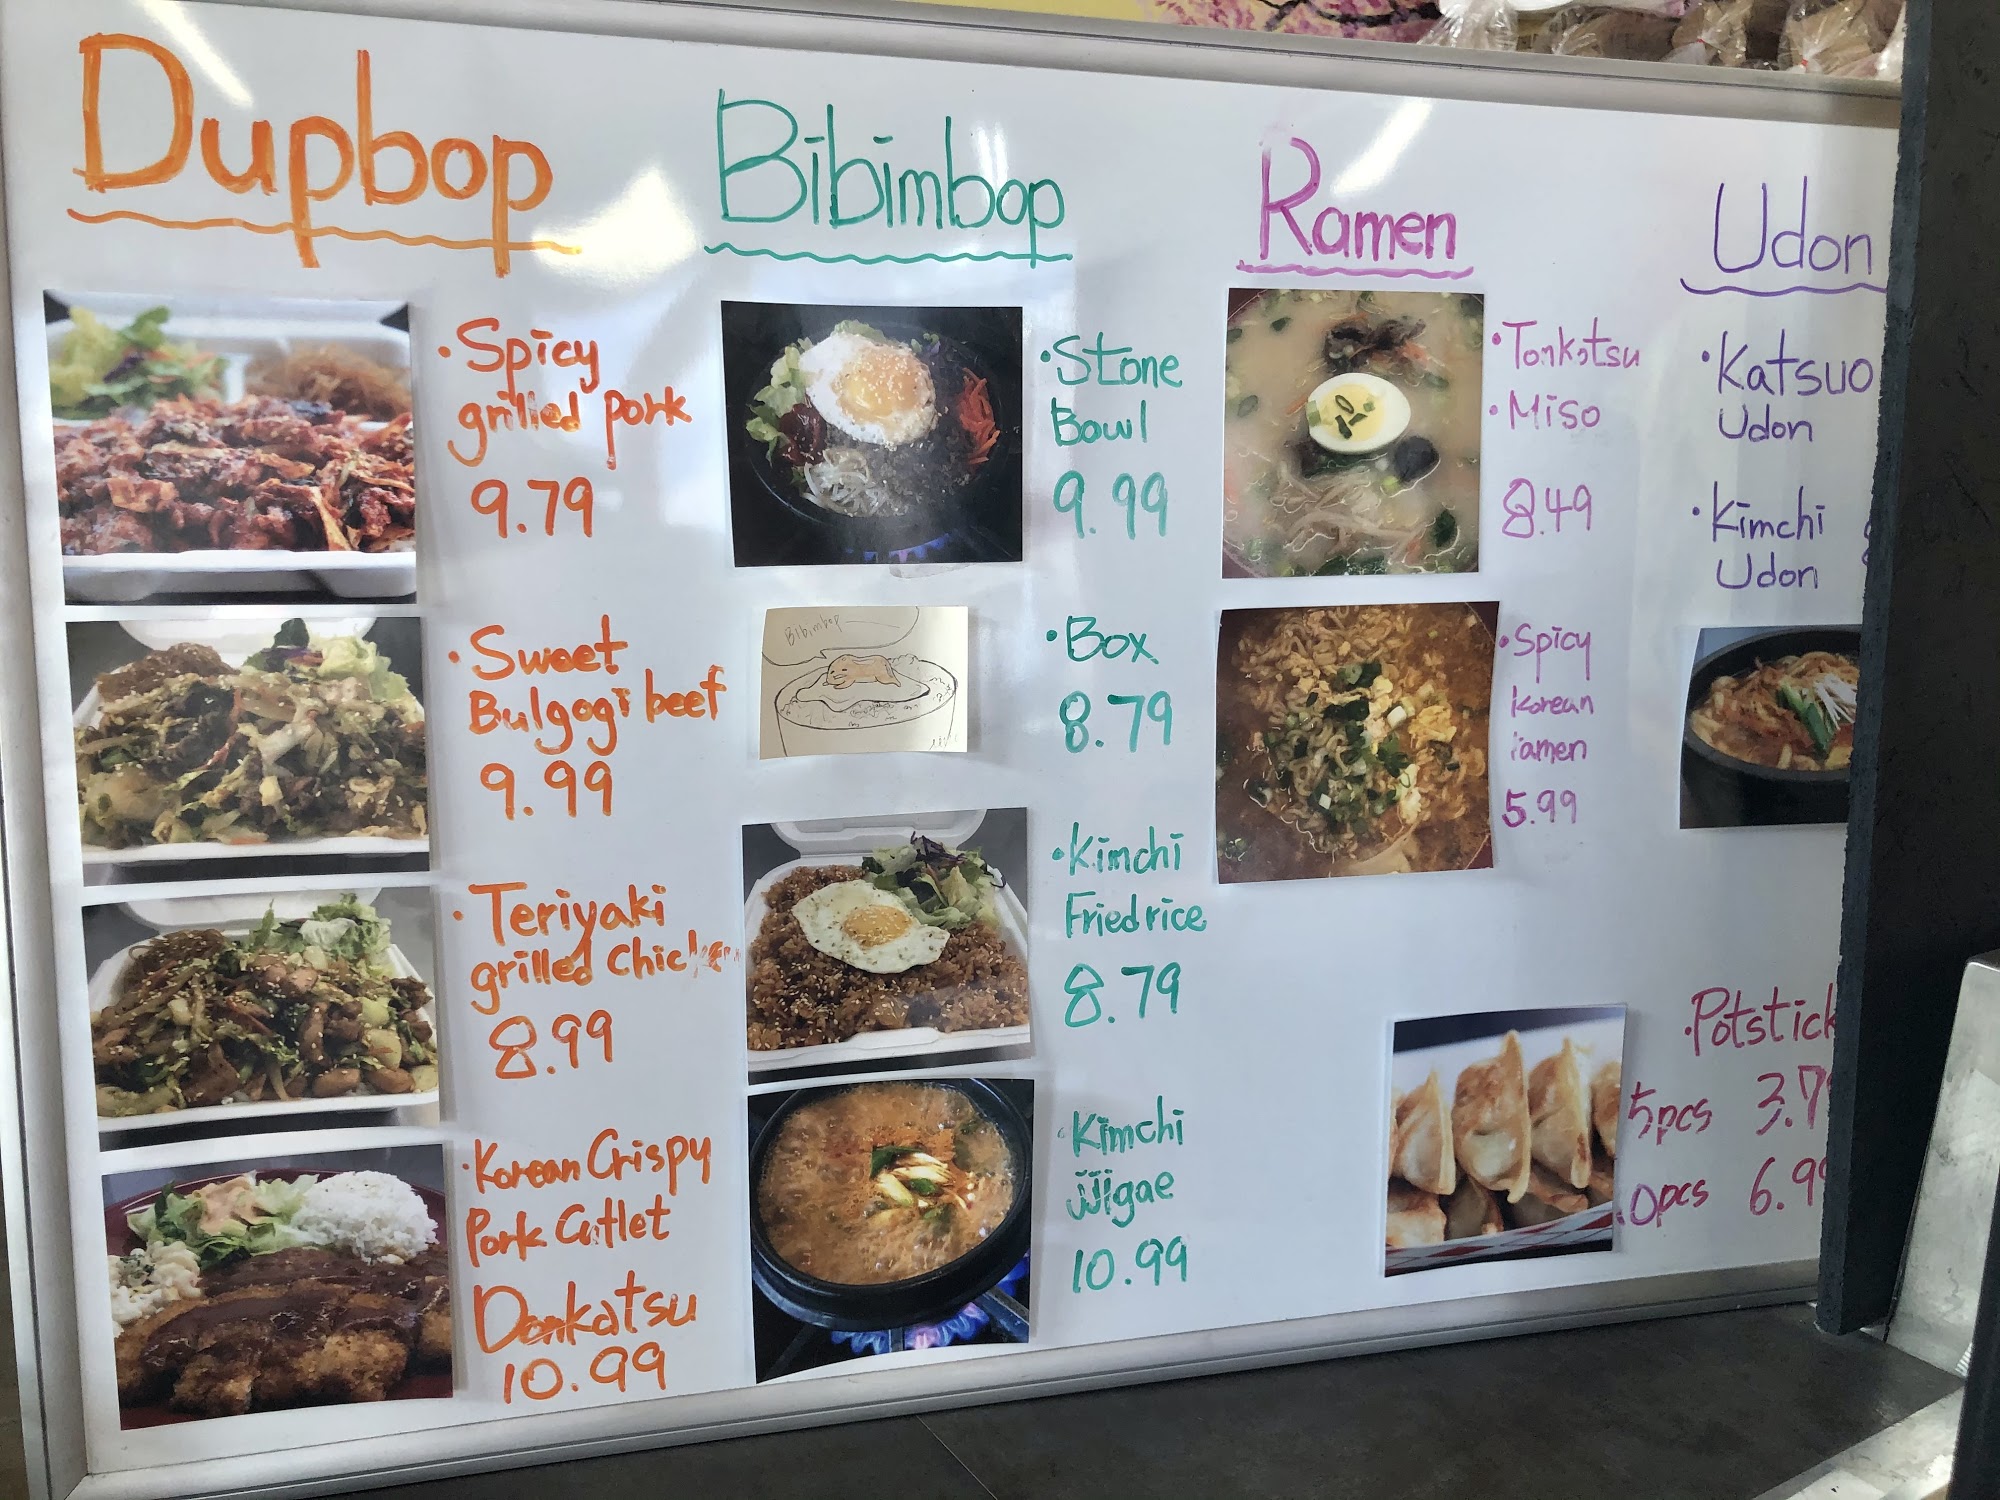 Dupbop
· Spicy
grilled pork
9.79
· Sweet
Bulgogi beef
9.99
· Teriyaki
grilled Chicken
8.99
· Korean Crispy
Pork Cutlet
Donkatsu
10.99
Bibimbop
· Stone
Bowl
9.99
Bibimbop
· Box
8.79
· Kimchi
Fried rice
8.79
· Kimchi
jjigae
10.99
Ramen
· Tonkatsu
· Miso
8.49
· Spicy
Korean
ramen
5.99
Udon
· Katsuo
Udon
· Kimchi
Udon
· Potstick
5pcs 3.7
0pcs 6.99